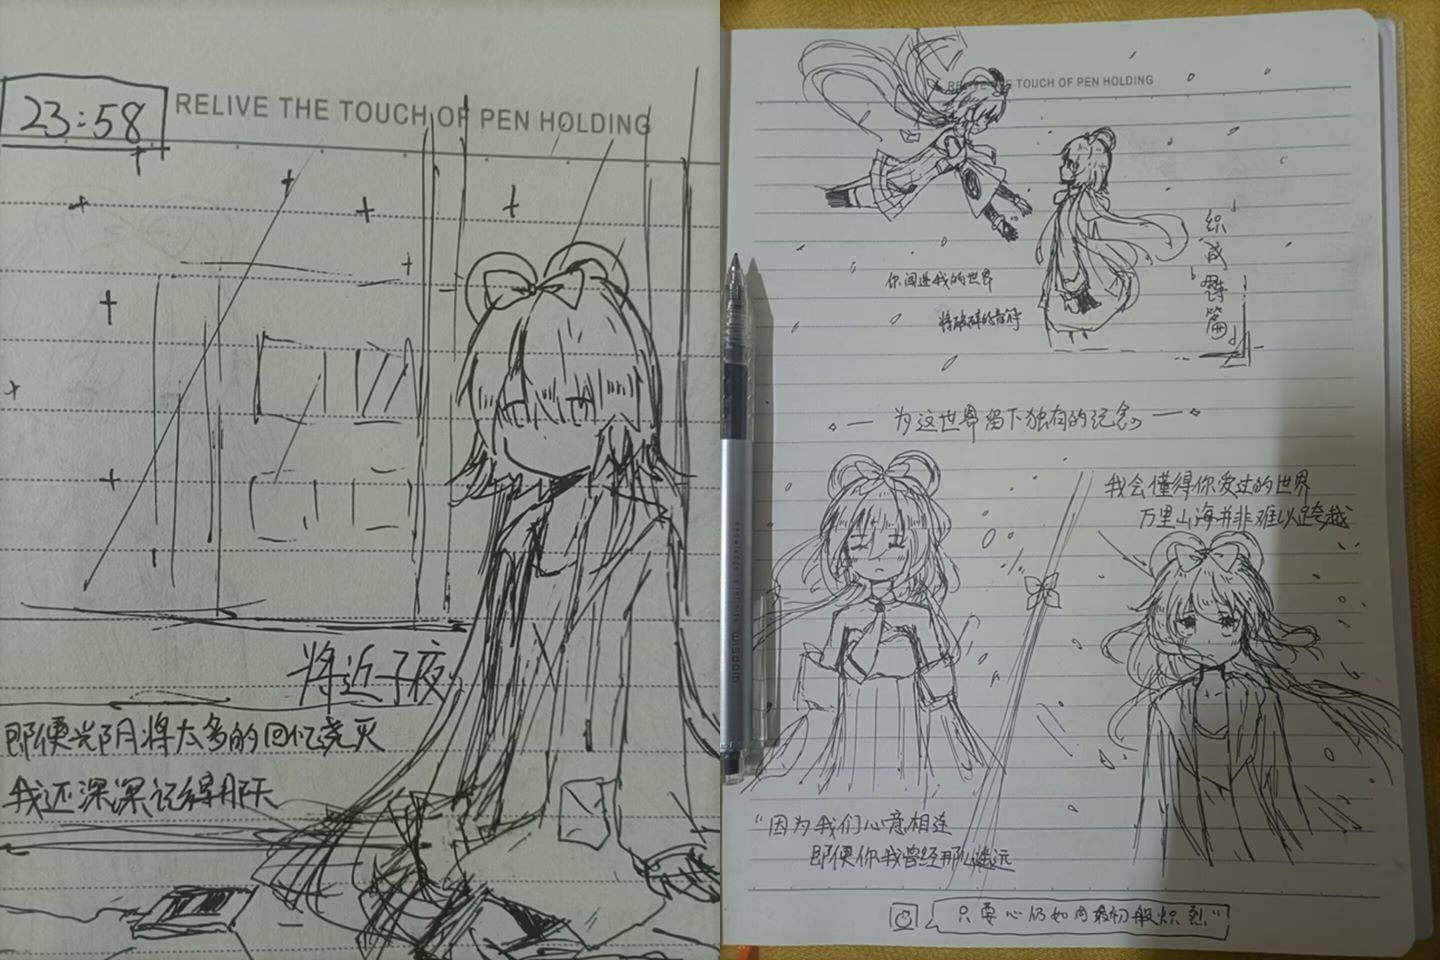 23:58
RELIVE THE TOUCH OF PEN HOLDING
将近子夜
即便光阴将太多的回忆烧灭
我还深深记得那天
RELIVE THE TOUCH OF PEN HOLDING
你闯进我的世界
将破碎的音符
织成詩篇
为这世界留下独有的纪念
我会懂得你爱过的世界
万里山海并非难以跨越
“因为我们心意相连
即便你我曾经那么遥远
只要心仍如同最初般炽烈”